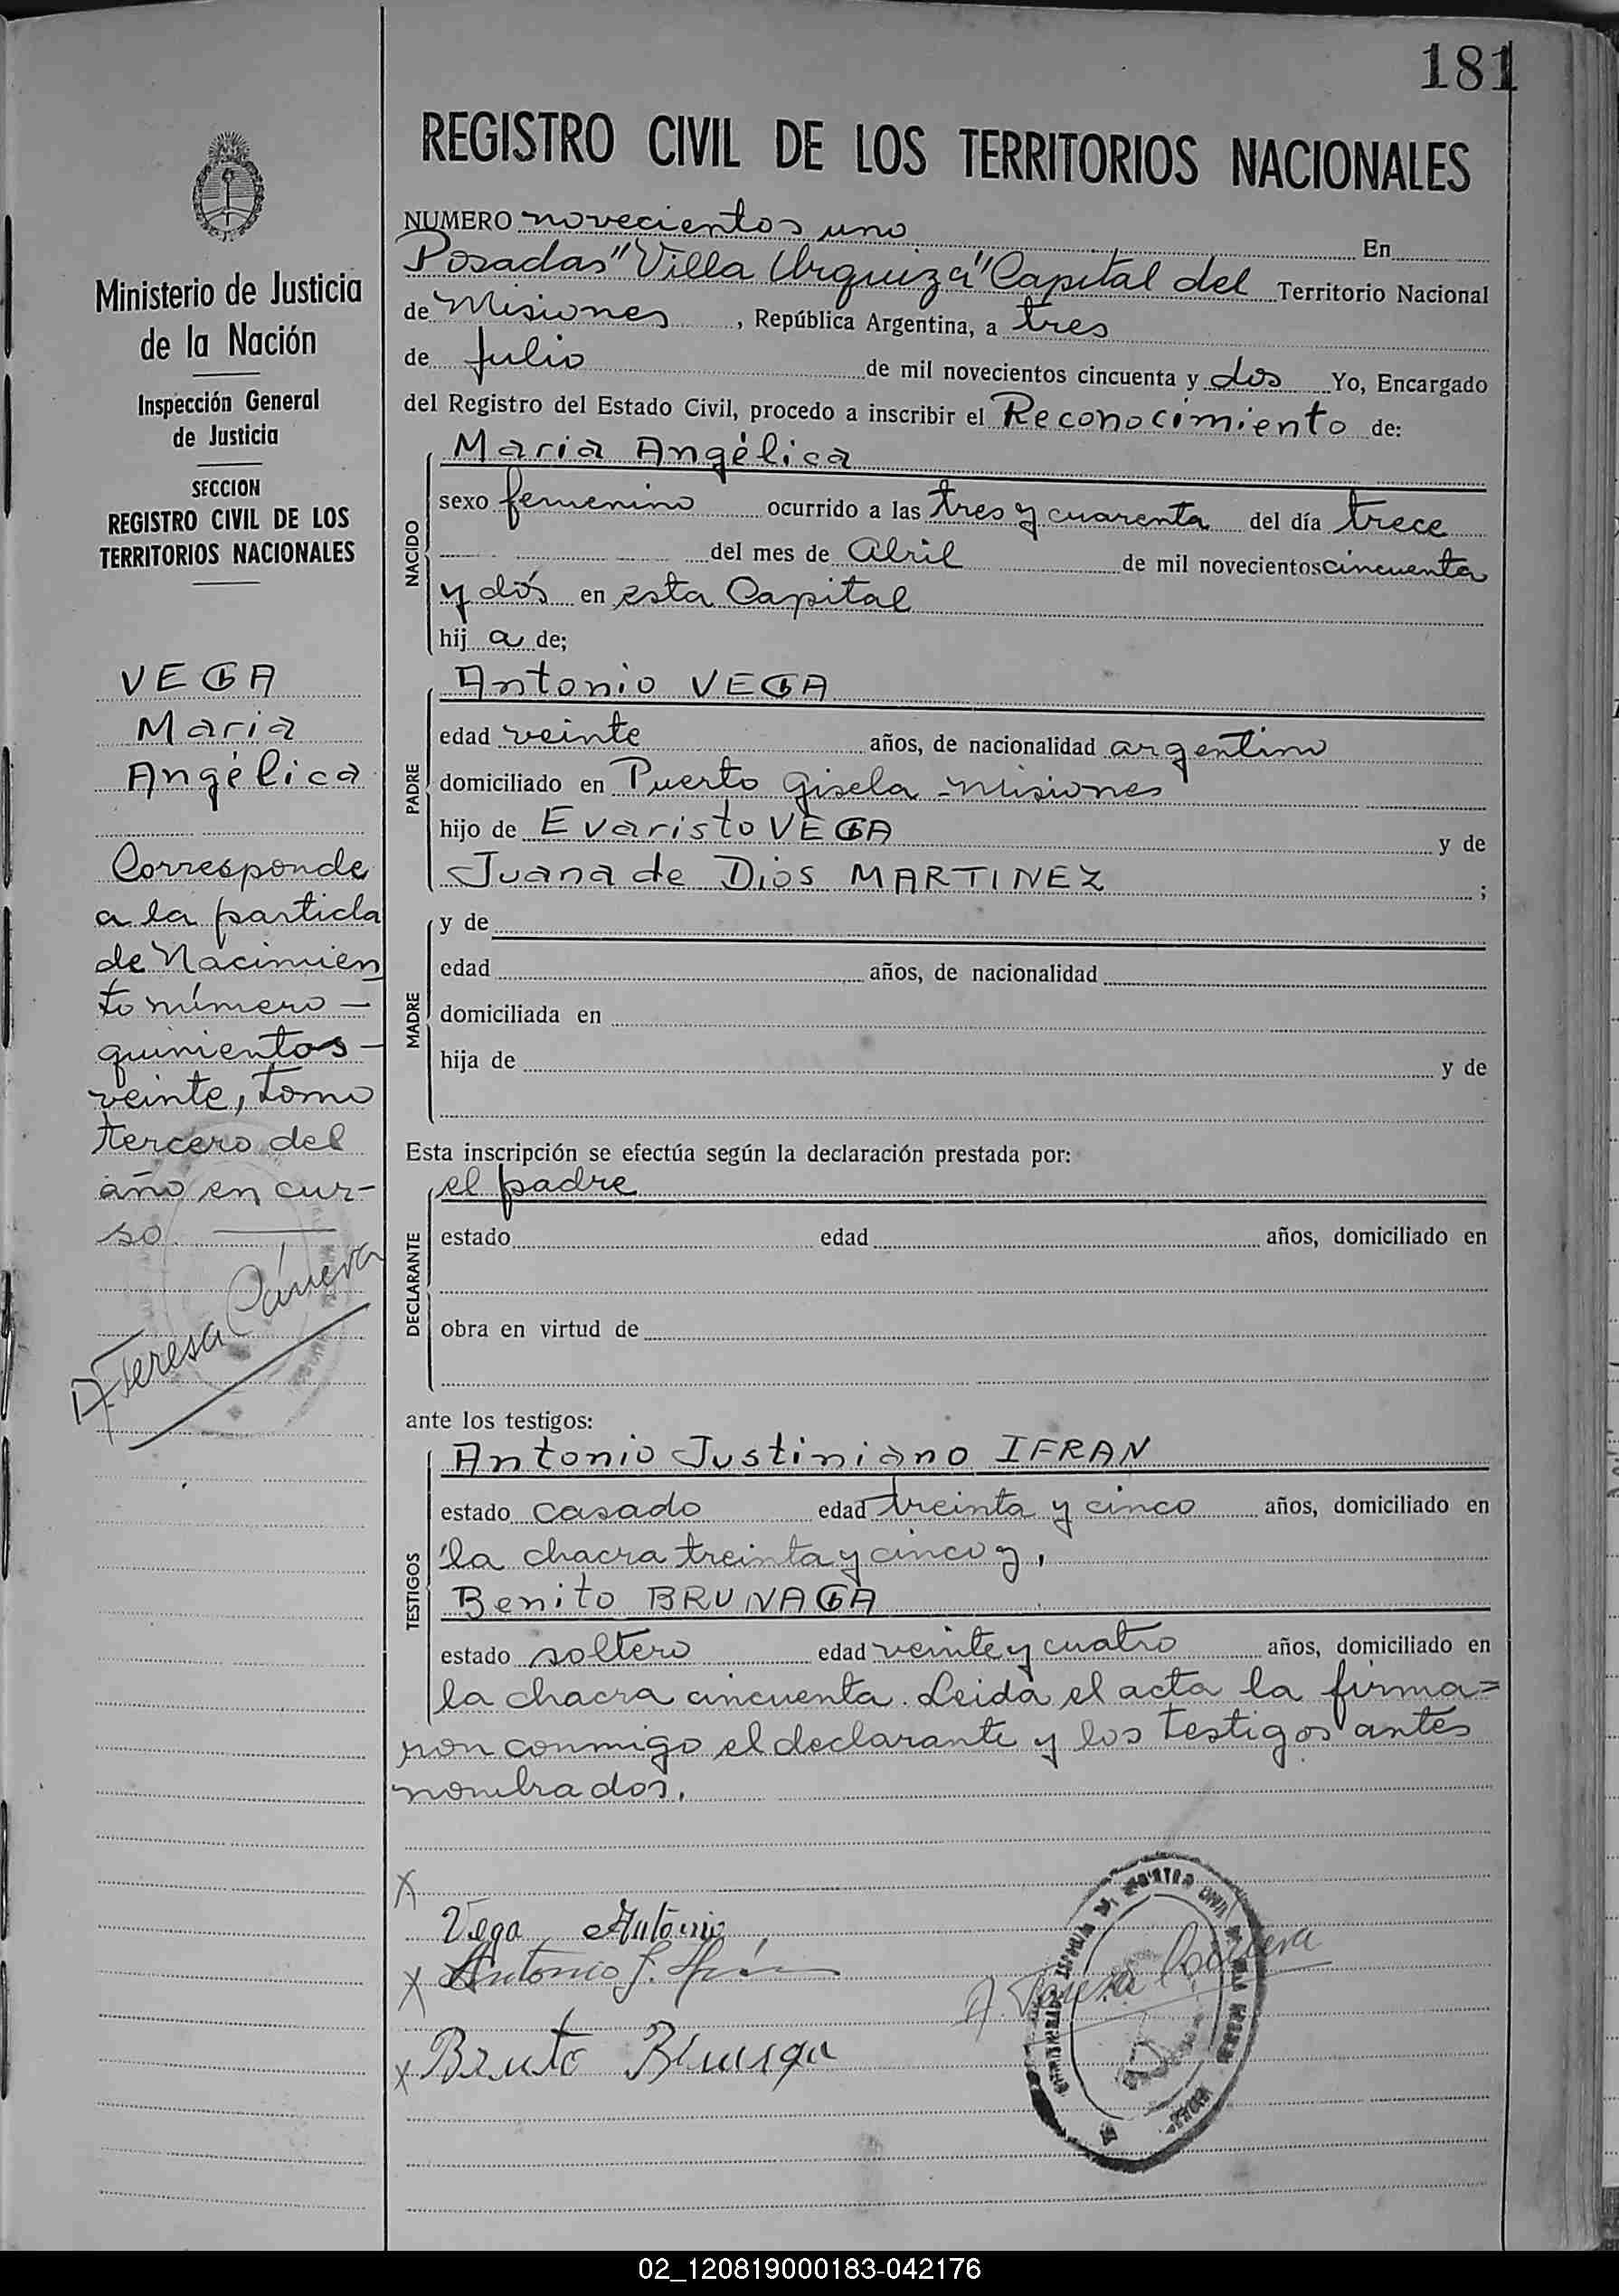 181
REGISTRO CIVIL DE LOS TERRITORIOS NACIONALES
Ministerio de Justicia
de la Nación
Inspección General
de Justicia
SECCION
REGISTRO CIVIL DE LOS
TERRITORIOS NACIONALES
VEGA
Maria
Angélica
Corresponde
a la partida
de Nacimien
to número —
quinientos —
veinte, tomo
tercero del
año en cur-
so.
A. Teresa Cáneva
NUMERO novecientos uno En
Posadas "Villa Urquiza" Capital del Territorio Nacional
de Misiones, República Argentina, a tres
de Julio de mil novecientos cincuenta y dos Yo, Encargado
del Registro del Estado Civil, procedo a inscribir el Reconocimiento de:
NACIDO
Maria Angélica
sexo femenino ocurrido a las tres y cuarenta del día trece
del mes de Abril de mil novecientos cincuenta
y dós en esta Capital
hij a de;
PADRE
Antonio VEGA
edad veinte años, de nacionalidad argentino
domiciliado en Puerto Gisela - Misiones
hijo de Evaristo VEGA y de
Juana de Dios MARTINEZ ;
MADRE
y de
edad años, de nacionalidad
domiciliada en
hija de y de
Esta inscripción se efectúa según la declaración prestada por:
DECLARANTE
el padre
estado edad años, domiciliado en
obra en virtud de
ante los testigos:
TESTIGOS
Antonio Justiniano IFRAN
estado casado edad treinta y cinco años, domiciliado en
la chacra treinta y cinco y,
Benito BRUNAGA
estado soltero edad veinte y cuatro años, domiciliado en
la chacra cincuenta. Leida el acta la firma=
ron conmigo el declarante y los testigos antes
nombrados.
X
Vega Antonio
X Antonio J. Ifrán
A. Teresa Cáneva
X Benito
02_120819000183-042176